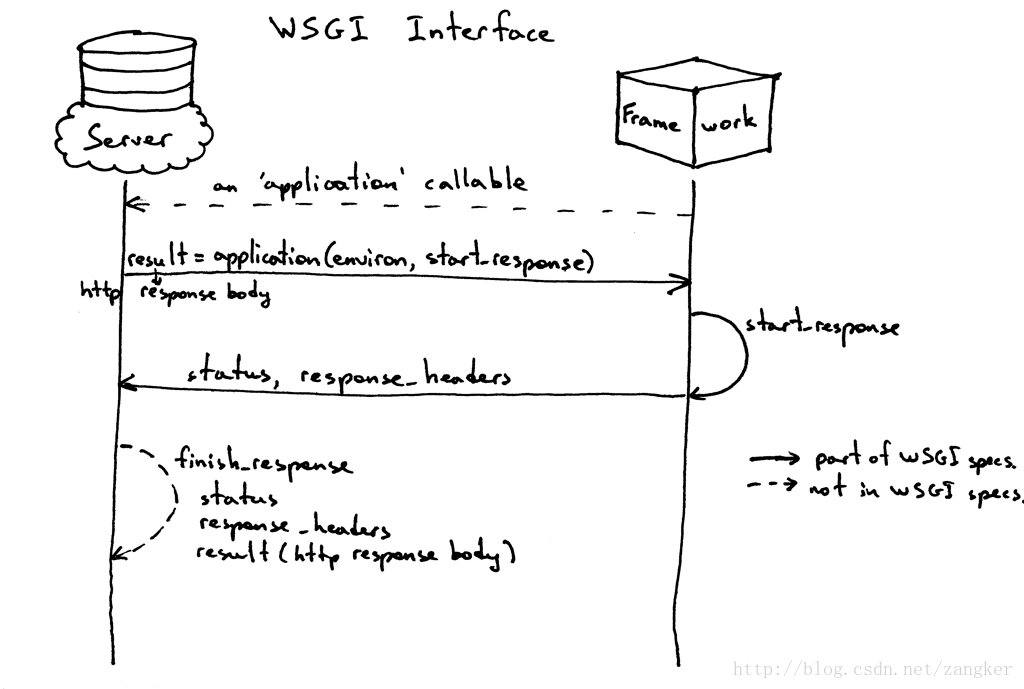 WSGI Interface
Server
Frame work
an 'application' callable
result = application(environ, start_response)
http response body
start_response
status, response_headers
finish_response
status
response_headers
result (http response body)
part of WSGI specs.
not in WSGI specs.
http://blog.csdn.net/zangker